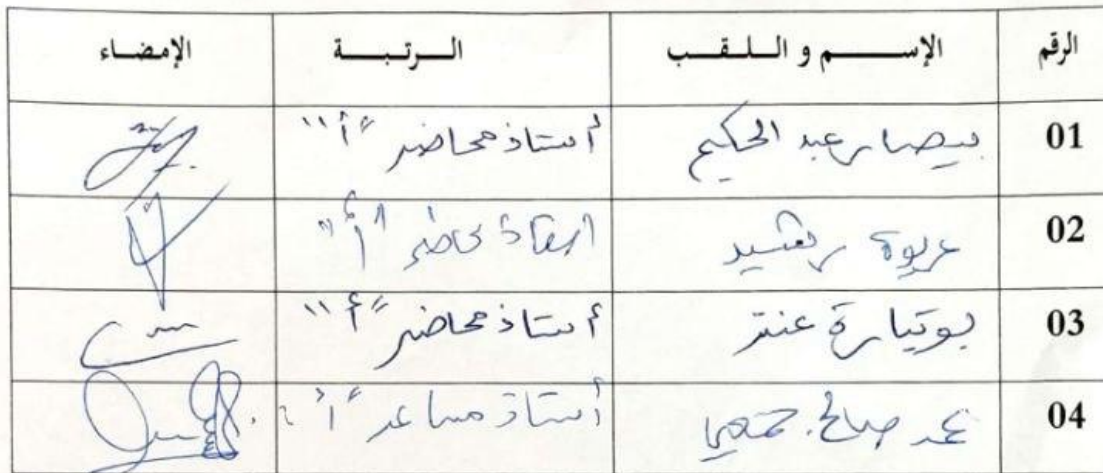 الرقم الإسم و اللقب الرتبة الإمضاء
01 بيصار عبد الحكيم أستاذ محاضر "أ"
02 عريوة رشيد أستاذ محاضر "أ"
03 بوتيارة عنتر أستاذ محاضر "أ"
04 محمد صالح جمعي أستاذ مساعد "أ"